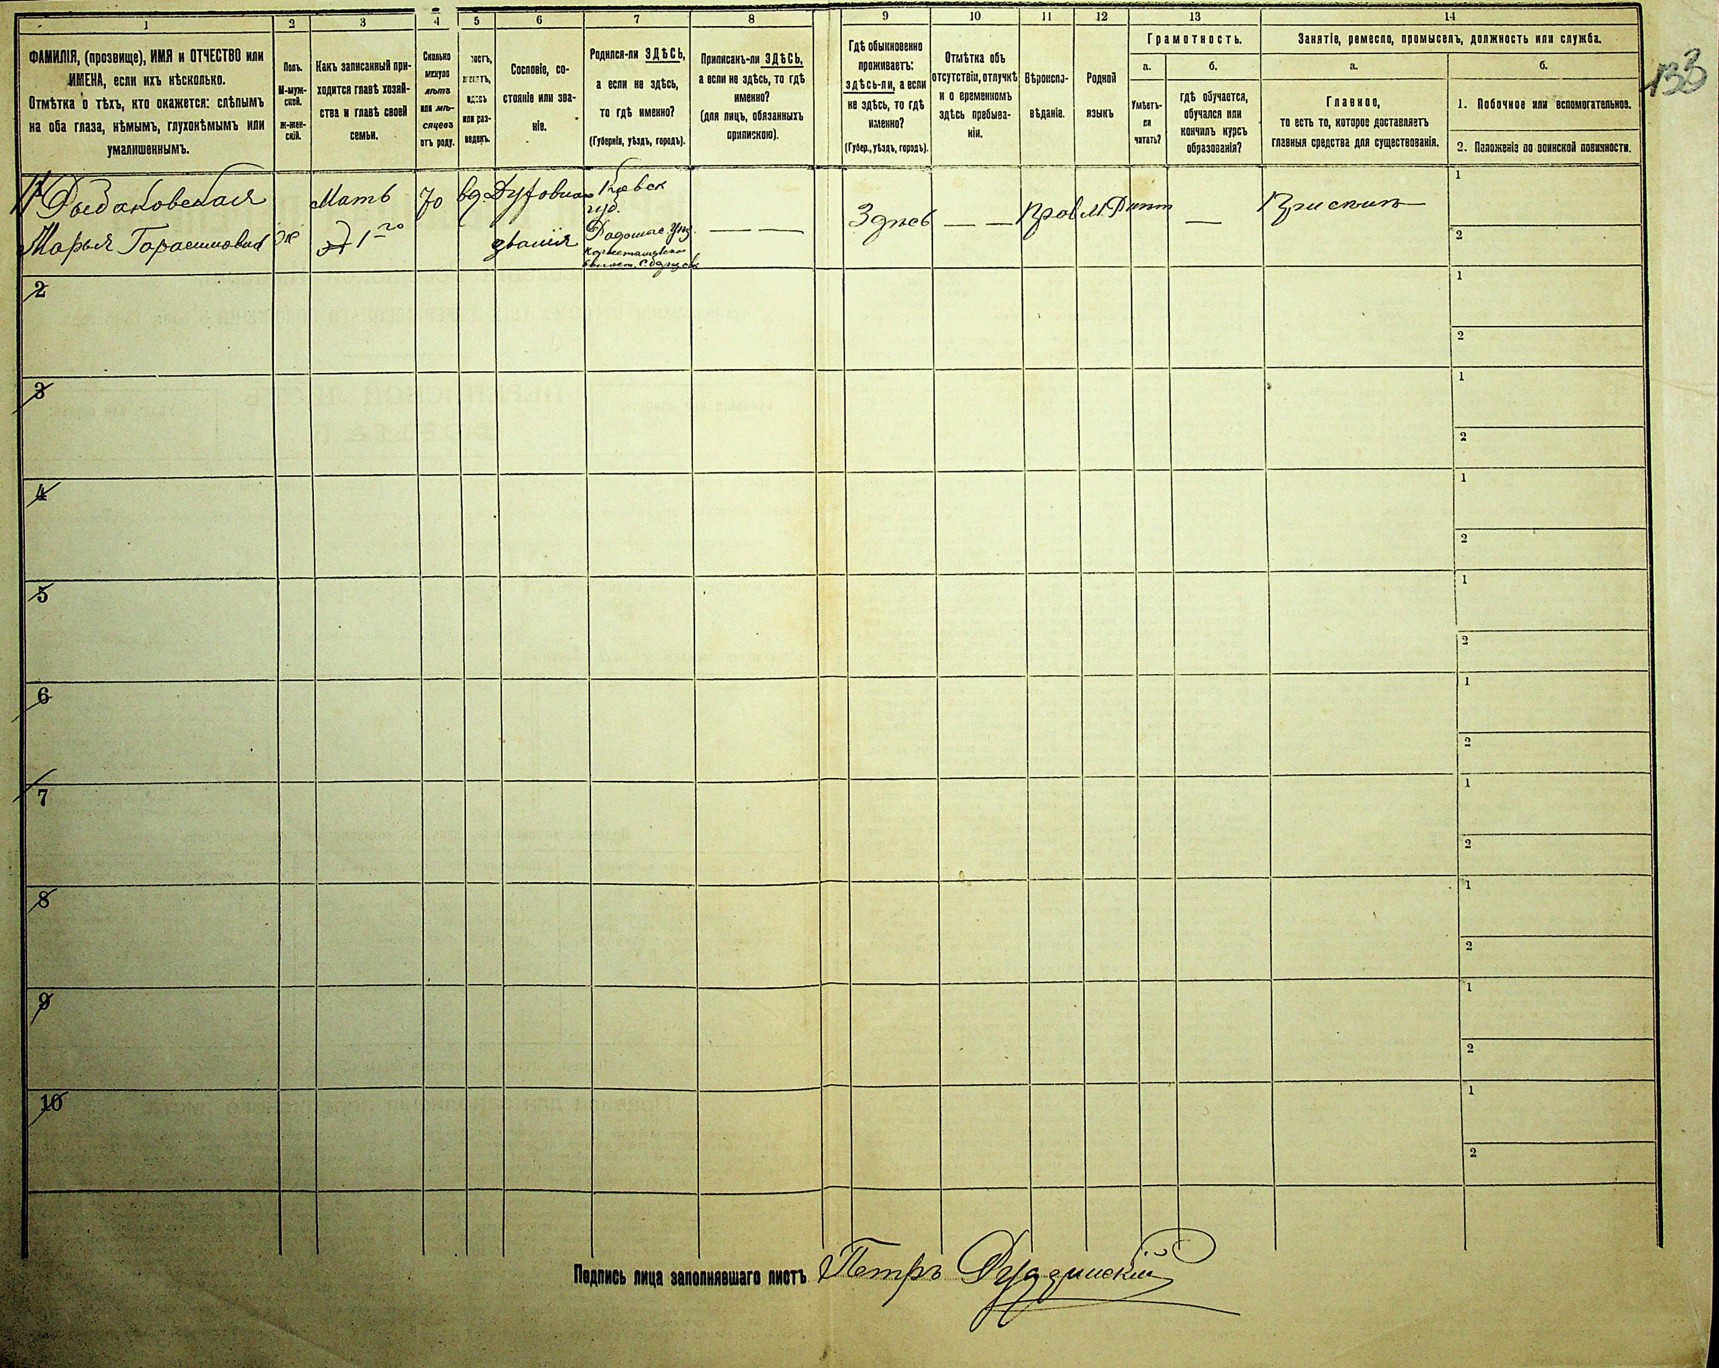 1 2 3 4 5 6 7 8 9 10 11 12 13 14
ФАМИЛІЯ, (прозвище), ИМЯ и ОТЧЕСТВО или
ИМЕНА, если ихъ нѣсколько.
Отмѣтка о тѣхъ, кто окажется: слѣпымъ
на оба глаза, нѣмымъ, глухонѣмымъ или
умалишеннымъ.
Полъ.
М-муж-
ской.
ж-жен-
скій.
Какъ записанный при-
ходится главѣ хозяй-
ства и главѣ своей
семьи.
Сколько
минуло
лѣтъ
или мѣ-
сяцевъ
отъ роду.
или раз-
веденъ.
Сословіе, со-
стояніе или зва-
ніе.
Родился-ли ЗДѢСЬ,
а если не здѣсь,
то гдѣ именно?
(Губернія, уѣздъ, городъ).
Приписанъ-ли ЗДѢСЬ,
а если не здѣсь, то гдѣ
именно?
(для лицъ, обязанныхъ
припискою).
Гдѣ обыкновенно
проживаетъ:
здѣсь-ли, а если
не здѣсь, то гдѣ
именно?
(Губер., уѣздъ, городъ).
Отмѣтка объ
отсутствіи, отлучкѣ
и о временномъ
здѣсь пребыва-
ніи.
Вѣроиспо-
вѣданіе.
Родной
языкъ
Грамотность.
а.
Умѣетъ-
ли
читать?
б.
гдѣ обучается,
обучался или
кончилъ курсъ
образованія?
Занятіе, ремесло, промыселъ, должность или служба.
а.
Главное,
то есть то, которое доставляетъ
главныя средства для существованія.
б.
1. Побочное или вспомогательное.
2. Положеніе по воинской повинности.
133
1
Мать 70 вд Духовнаго Кіевск
губ.
Марья Герасимовна ж 1го званія
Здѣсь — — Прав —
1
2
2
1
2
3
1
2
4
1
2
5
1
2
6
1
2
7
1
2
8
1
2
9
1
2
10
1
2
Подпись лица заполнявшаго листъ Петръ